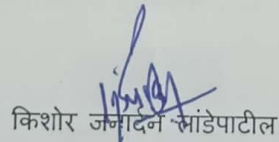 किशोर जनार्दन मांडेपाटील